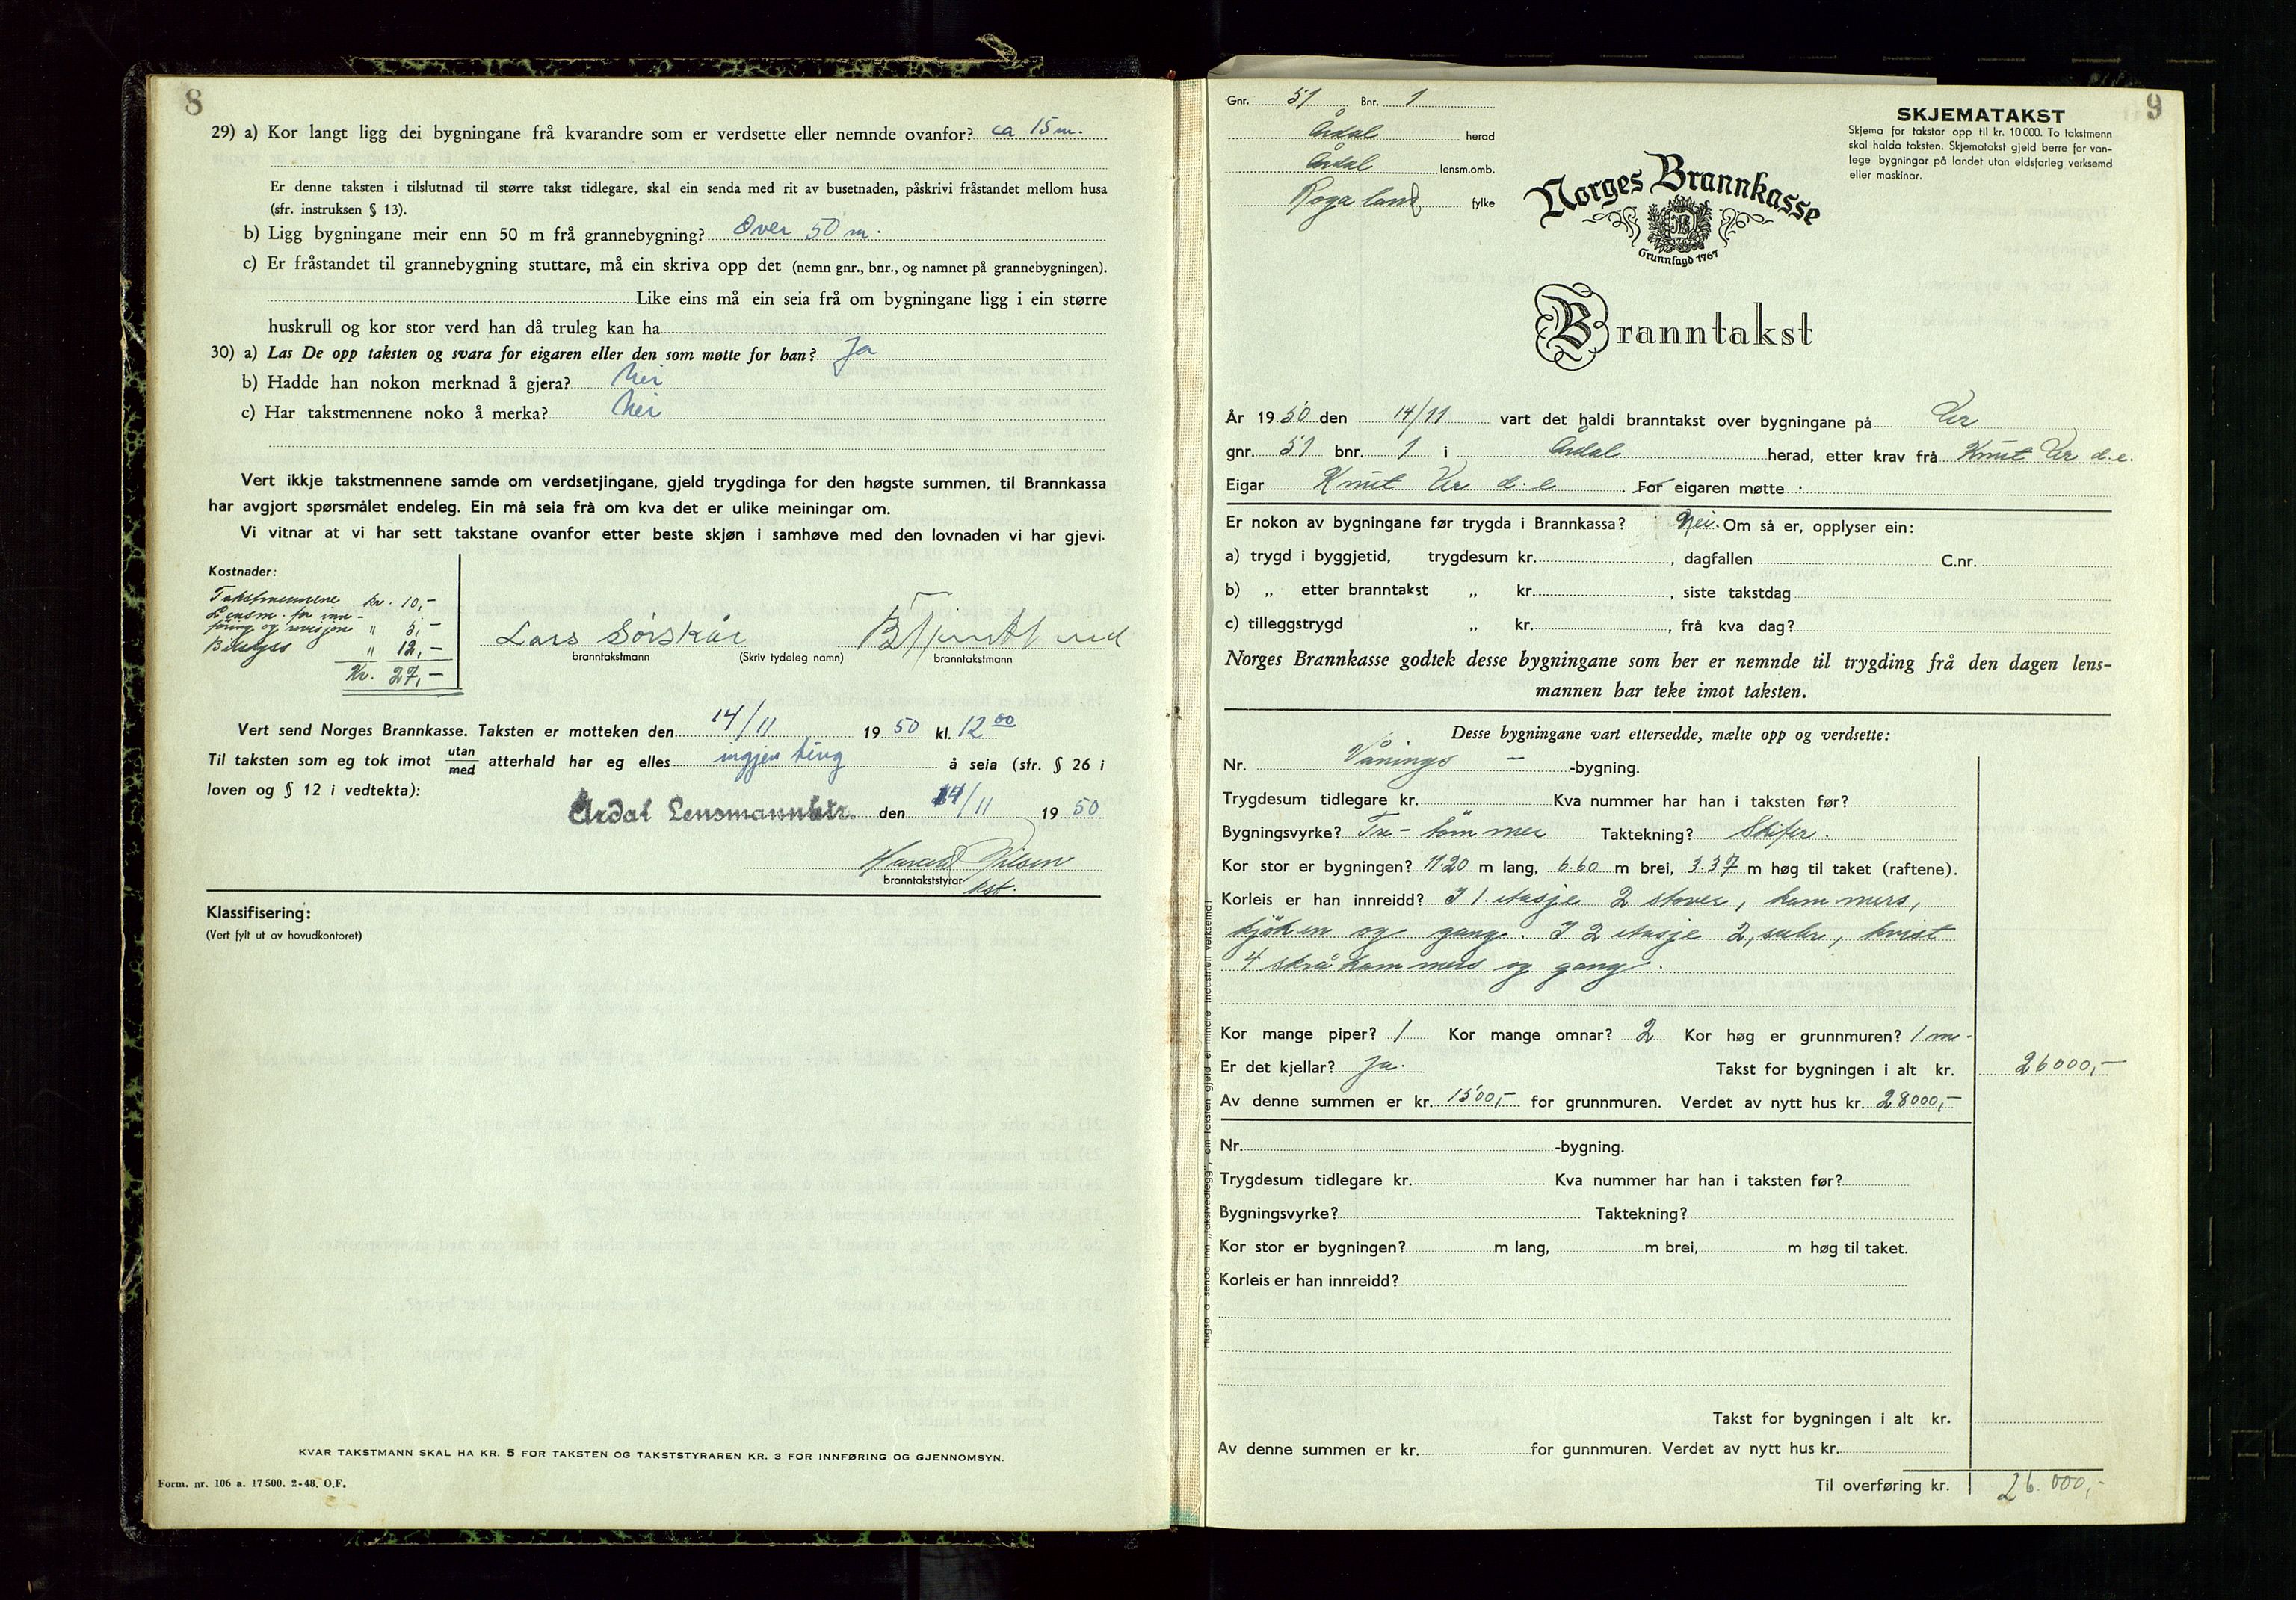 8
29) a) Kor langt ligg dei bygningane frå kvarandre som er verdsette eller nemnde ovanfor? ca 15 m.
Er denne taksten i tilslutnad til større takst tidlegare, skal ein senda med rit av busetnaden, påskrivi fråstandet mellom husa
(sfr. instruksen § 13).
b) Ligg bygningane meir enn 50 m frå grannebygning? Over 50 m.
c) Er fråstandet til grannebygning stuttare, må ein skriva opp det (nemn gnr., bnr., og namnet på grannebygningen).
Like eins må ein seia frå om bygningane ligg i ein større
huskrull og kor stor verd han då truleg kan ha
30) a) Las De opp taksten og svara for eigaren eller den som møtte for han? Ja
b) Hadde han nokon merknad å gjera? Nei
c) Har takstmennene noko å merka? Nei
Vert ikkje takstmennene samde om verdsetjingane, gjeld trygdinga for den høgste summen, til Brannkassa
har avgjort spørsmålet endeleg. Ein må seia frå om kva det er ulike meiningar om.
Vi vitnar at vi har sett takstane ovanfor etter beste skjøn i samhøve med den lovnaden vi har gjevi.
Kostnader:
Takstmennene kr. 10,-
Lensm. for inn-
føring og revisjon " 5,-
Bilskyss " 12,-
Kr. 27,-
Lars Sørskår
branntakstmann (Skriv tydeleg namn) branntakstmann
Vert send Norges Brannkasse. Taksten er motteken den 14/11 1950 kl. 12 00
Til taksten som eg tok imot utan/med atterhald har eg elles ingjen ting å seia (sfr. § 26 i
loven og § 12 i vedtekta):
Årdal Lensmannktr. den 14/11 1950
Harald Nilsen
branntakststyrar kst.
Klassifisering:
(Vert fylt ut av hovudkontoret)
KVAR TAKSTMANN SKAL HA KR. 5 FOR TAKSTEN OG TAKSTSTYRAREN KR. 3 FOR INNFØRING OG GJENNOMSYN.
Form. nr. 106 a. 17500. 2-48. O.F.
9
Gnr. 51 Bnr. 1
Årdal herad
Årdal lensm.omb.
Rogaland fylke
SKJEMATAKST
Skjema for takstar opp til kr. 10 000. To takstmenn
skal halda taksten. Skjematakst gjeld berre for van-
lege bygningar på landet utan eldsfarleg verksemd
eller maskinar.
Norges Brannkasse
Grunnlagd 1767
Branntakst
År 1950 den 14/11 vart det haldi branntakst over bygningane på Ur
gnr. 51 bnr. 1 i Årdal herad, etter krav frå Knut Ur d.e.
Eigar Knut Ur d.e. For eigaren møtte
Er nokon av bygningane før trygda i Brannkassa? Nei. Om så er, opplyser ein:
a) trygd i byggjetid, trygdesum kr. , dagfallen C.nr.
b) „ etter branntakst „ kr. , siste takstdag
c) tilleggstrygd „ kr. , frå kva dag?
Norges Brannkasse godtek desse bygningane som her er nemnde til trygding frå den dagen lens-
mannen har teke imot taksten.
Desse bygningane vart ettersedde, mælte opp og verdsette:
Nr. Vånings - -bygning.
Trygdesum tidlegare kr. Kva nummer har han i taksten før?
Bygningsvyrke? Tre-tømmer Taktekning? Skifer.
Kor stor er bygningen? 11.20 m lang, 6.60 m brei, 3.37 m høg til taket (raftene).
Korleis er han innreidd? I 1. etasje 2 stover, kammers,
kjøken og gang. I 2 etasje 2, saler, kvist
4 skråkammers og gang.
Kor mange piper? 1 Kor mange omnar? 2 Kor høg er grunnmuren? 1 m.
Er det kjellar? Ja. Takst for bygningen i alt kr. 26000,-
Av denne summen er kr. 1500,- for grunnmuren. Verdet av nytt hus kr. 28000,-
Nr. -bygning.
Trygdesum tidlegare kr. Kva nummer har han i taksten før?
Bygningsvyrke? Taktekning?
Kor stor er bygningen? m lang, m brei, m høg til taket.
Korleis er han innreidd?
Takst for bygningen i alt kr.
Av denne summen er kr. for gunnmuren. Verdet av nytt hus kr.
Til overføring kr. 26.000,-